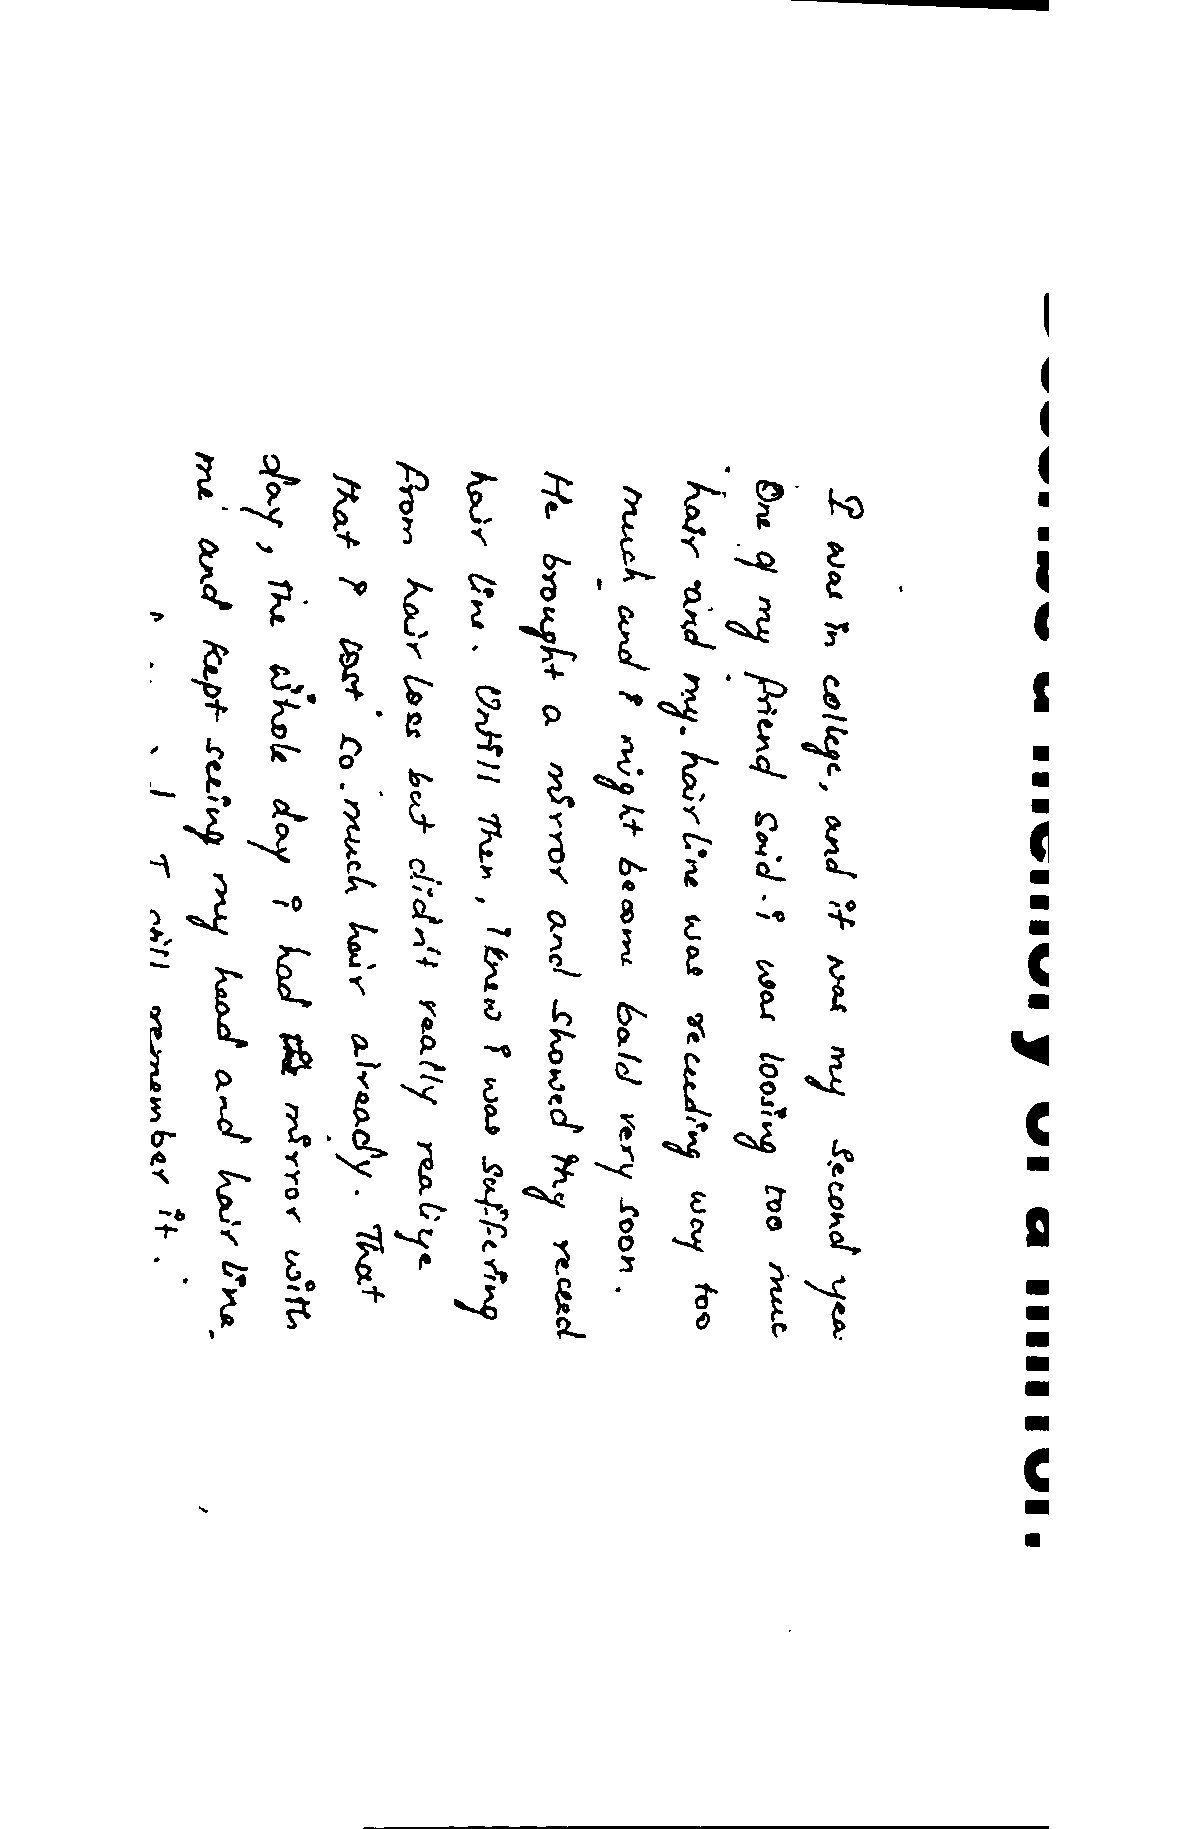 Describe a memory of a mirror.
I was in college, and it was my second yea
One of my friend said i was loosing too muc
hair and my hairline was receeding way too
much and i might become bald very soon.
He brought a mirror and showed my receed
hair line. Untill then, i knew i was suffering
from hair loss but didn't really realize
that i lost so much hair already. That
day, the whole day i had the mirror with
me and kept seeing my head and hair line.
I still remember it.